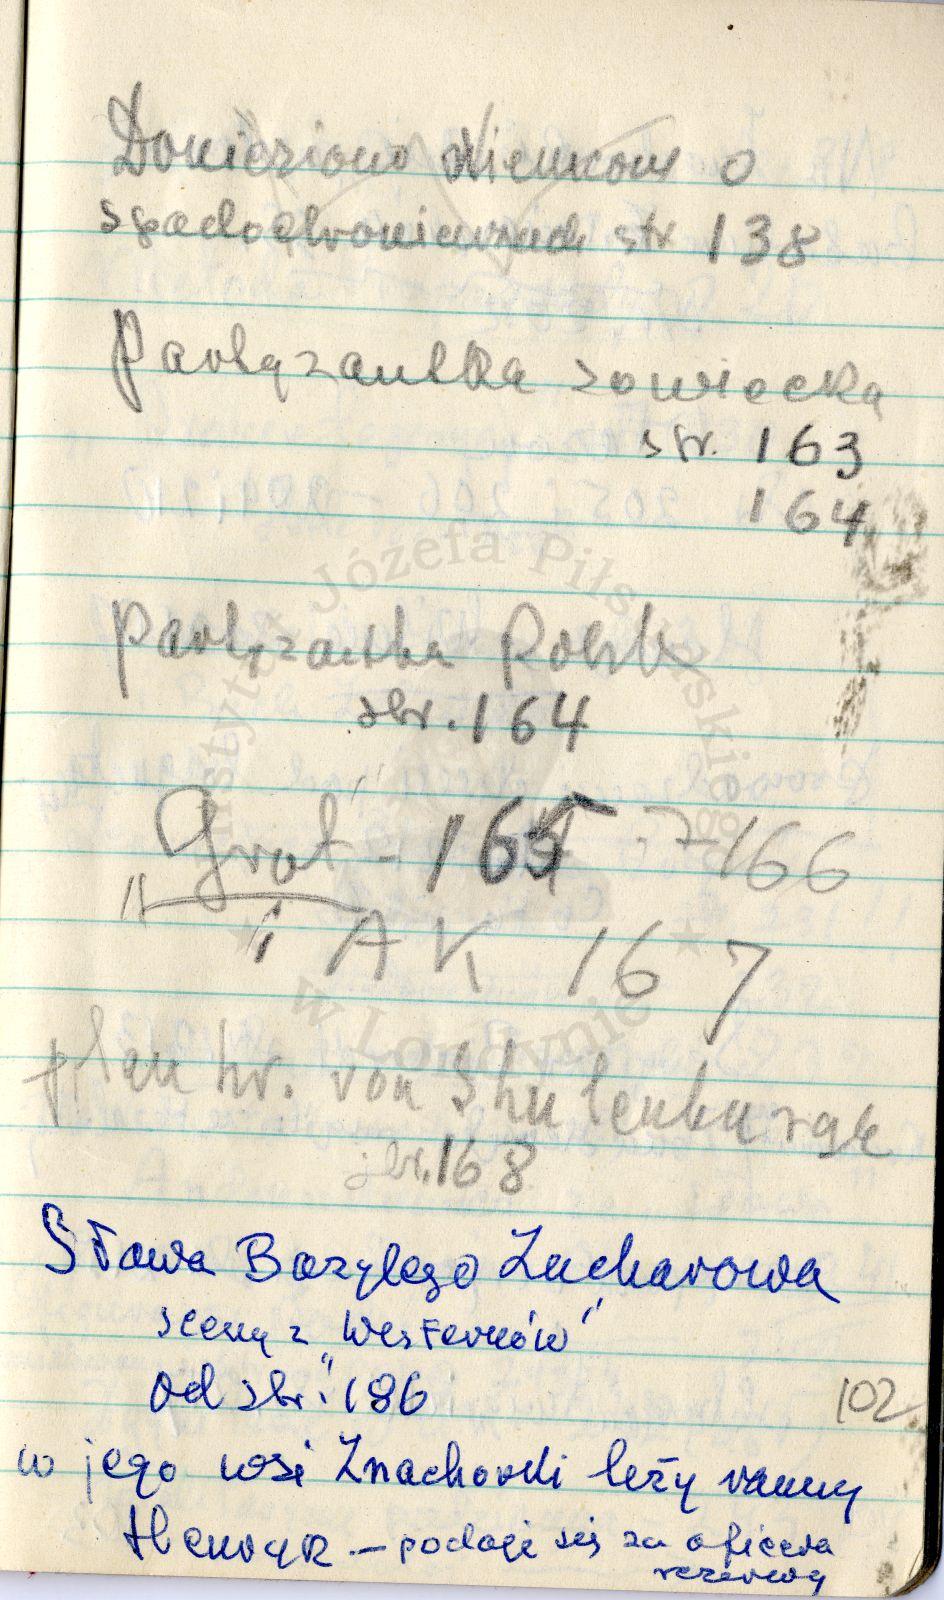 Doniesiono Niemcom o
spadochroniarzach str 138
Partyzantka sowiecka
str. 163
164
Partyzantka Polsk
str. 164
"Grot" - 165 - 7 166
i AK 167
plan hr. von Shulenburga
str. 168
Sława Bazylego Zacharowa
sceny z "Westernów"
od str. 186
102
w jego wsi Znachorki leży ranny
Henryk - podaje się za oficera
rezerwy
Instytut Józefa Piłsudskiego
w Londynie